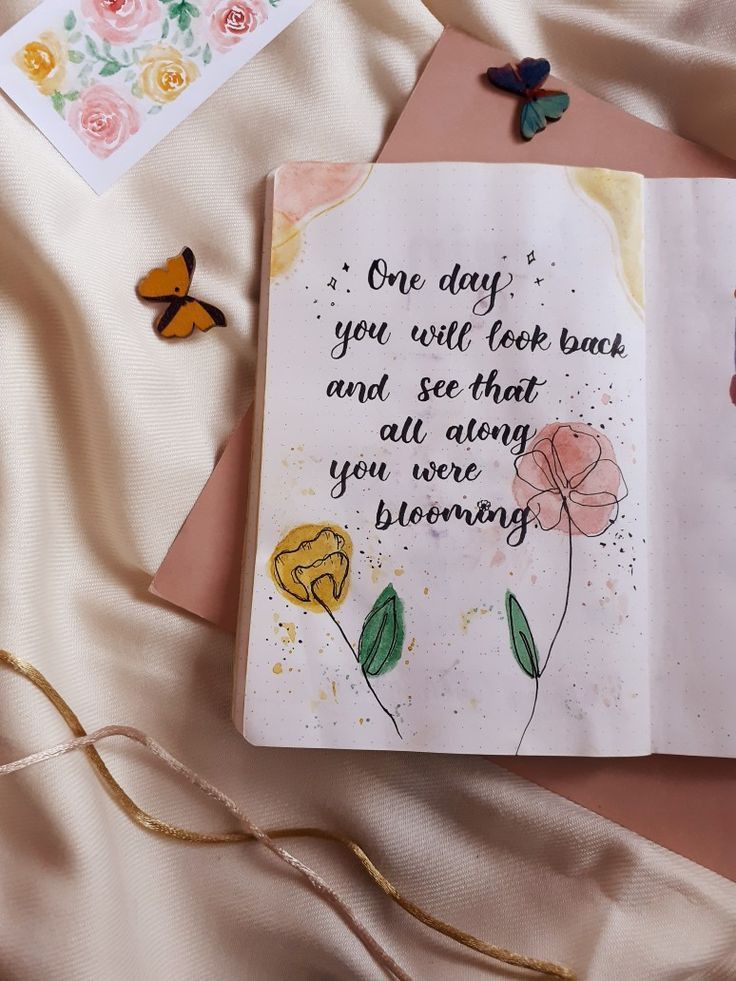 One day,
you will look back
and see that
all along
you were
blooming.